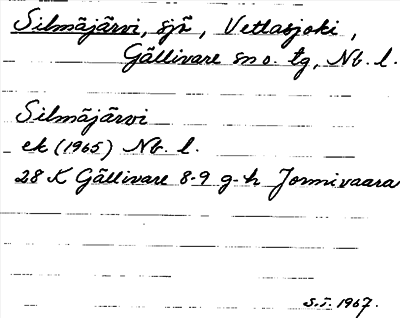 Silmäjärvi, sjö, Vettasjoki,
Gällivare sn o. tg, Nb. l.
Silmäjärvi
ek (1965) Nb. l.
28 K Gällivare 8-9 g-h Jormivaara
S.I. 1967.